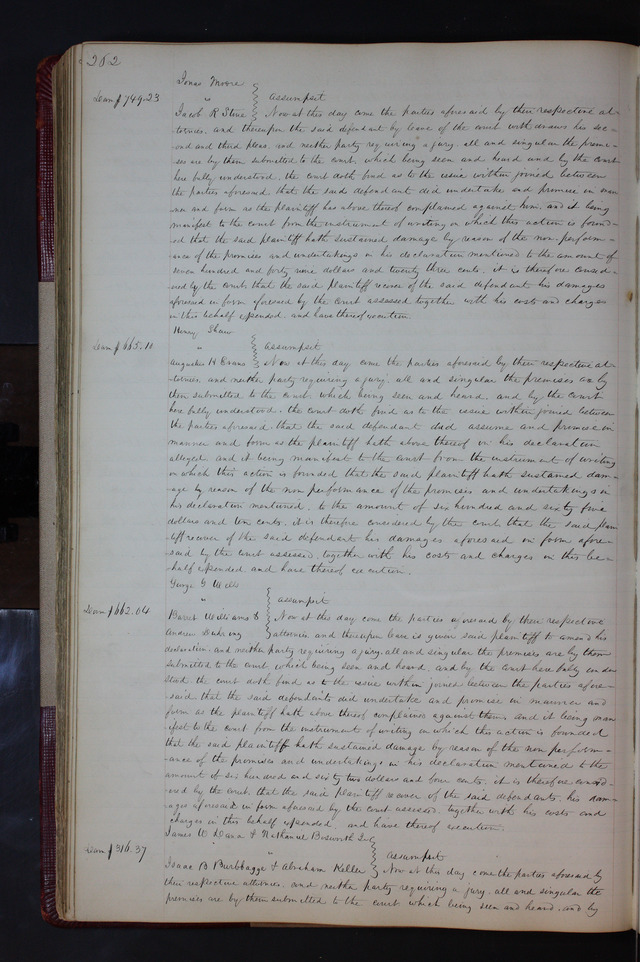 262
Jonas Moore
Dam $749.23 " assumpsit
Jacob R Stine Now at this day come the parties aforesaid by their respective at-
tornies. and thereupon the said defendant by leave of the court withdraws his sec-
ond and third pleas. and neither party requiring a jury. all and singular the premi-
ses are by them submitted to the court. which being seen and heard and by the court
here fully understood. the court doth find as to the issue within joined between
the parties aforesaid. that the said defendant did undertake and promise in man
ner and form as the plaintiff has above thereof complained against him. and it being
manifest to the court from the instrument of writing on which this action is found-
ed that the said plaintiff hath sustained damage by reason of the non perform-
ance of the promises and undertakings in his declaration mentioned to the amount of
seven hundred and forty nine dollars and twenty three cents. it is therefore consid-
ered by the court that the said plaintiff recover of the said defendant his damages
aforesaid in form aforesaid by the court assessed together with his costs and charges
in this behalf expended. and have thereof execution.
Henry Shaw
Dam $665.10 " assumpsit
Augustus H Evans Now at this day come the parties aforesaid by their respective at-
tornies. and neither party requiring a jury. all and singular the premises are by
them submitted to the court. which being seen and heard, and by the court
here fully understood. the court doth find as to the issue within joined between
the parties aforesaid. that the said defendant did assume and promise in
manner and form as the plaintiff hath above thereof in his declaration
alleged. and it being manifest to the court from the instrument of writing
on which this action is founded that the said plaintiff hath sustained dam-
age by reason of the non performance of the promises and undertakings in
his declaration mentioned. to the amount of six hundred and sixty five
dollars and ten cents. it is therefore considered by the court that the said plain
tiff recover of the said defendant his damages aforesaid in form afore-
said by the court assessed. together with his costs and charges in this be-
half expended and have thereof execution.
George G Wells
Dam $662.04 " assumpsit
Barret Williams & Now at this day come the parties aforesaid by their respective
Andrew attornies and thereupon leave is given said plaintiff to amend his
declaration. and neither party requiring a jury. all and singular the premises are by them
submitted to the court. which being seen and heard, and by the court here fully under
stood. the court doth find as to the issue within joined between the parties afore-
said that the said defendants did undertake and promise in manner and
form as the plaintiff hath above thereof complained against them. and it being man
ifest to the court from the instrument of writing on which this action is founded
that the said plaintiff hath sustained damage by reason of the non perform-
ance of the promises and undertakings in his declaration mentioned to the
amount of six hundred and sixty two dollars and four cents. it is therefore consid-
ered by the court. that the said plaintiff recover of the said defendants, his dam-
ages aforesaid in form aforesaid by the court assessed. together with his costs and
charges in this behalf expended and have thereof execution.
James W Dana & Nathaniel Bosworth
Dam $316.37 " assumpsit
Isaac B Burbbagge & Abraham Keller Now at this day come the parties aforesaid by
their respective attornies. and neither party requiring a jury. all and singular the
premises are by them submitted to the court which being seen and heard. and by